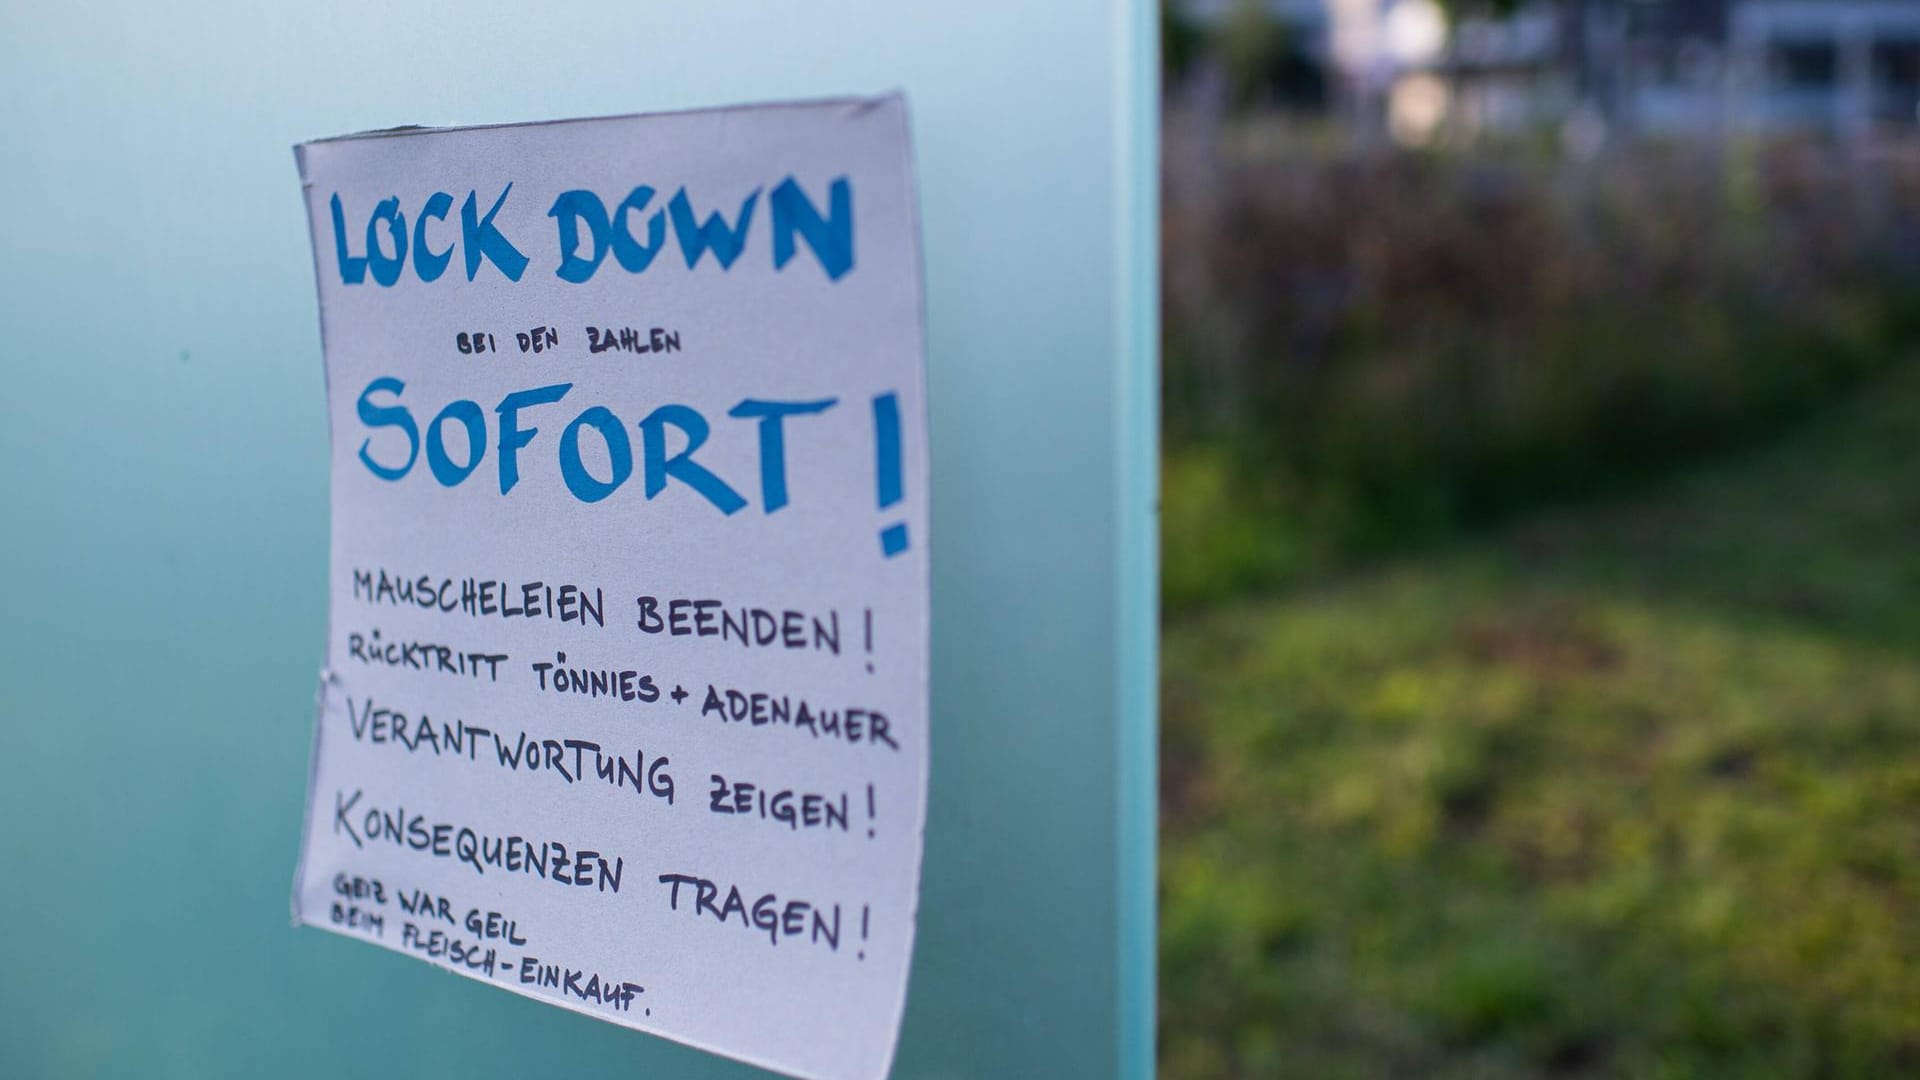 LOCK DOWN
BEI DEN ZAHLEN
SOFORT!
MAUSCHELEIEN BEENDEN!
RÜCKTRITT TÖNNIES + ADENAUER
VERANTWORTUNG ZEIGEN!
KONSEQUENZEN TRAGEN!
GEIZ WAR GEIL
BEIM FLEISCH-EINKAUF.